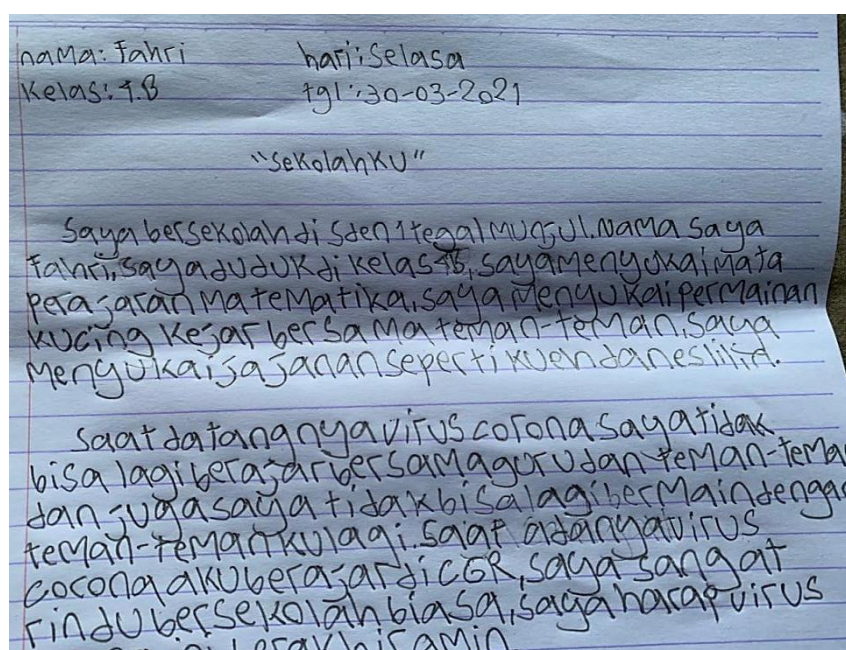 nama: Fahri hari: Selasa
Kelas: 4.B tgl: 30-03-2021
"SeKolahKU"
Saya bersekolah di Sden 1 tegal munjul. Nama Saya
Fahri, saya duduk di kelas 4B, saya menyukai mata
perajaran matematika, saya menyukai permainan
kucing kejar bersama teman-teman, saya
menyukai jajanan seperti kueh dan es lilin.
Saat datangnya virus corona saya tidak
bisa lagi berajar bersama guru dan teman-tema
dan juga saya tidak bisa lagi bermain denga
teman-temanku lagi. Saat adanya virus
corona aku berajar di CGR, saya sangat
rindu bersekolah biasa, saya harap virus
berakhir amin